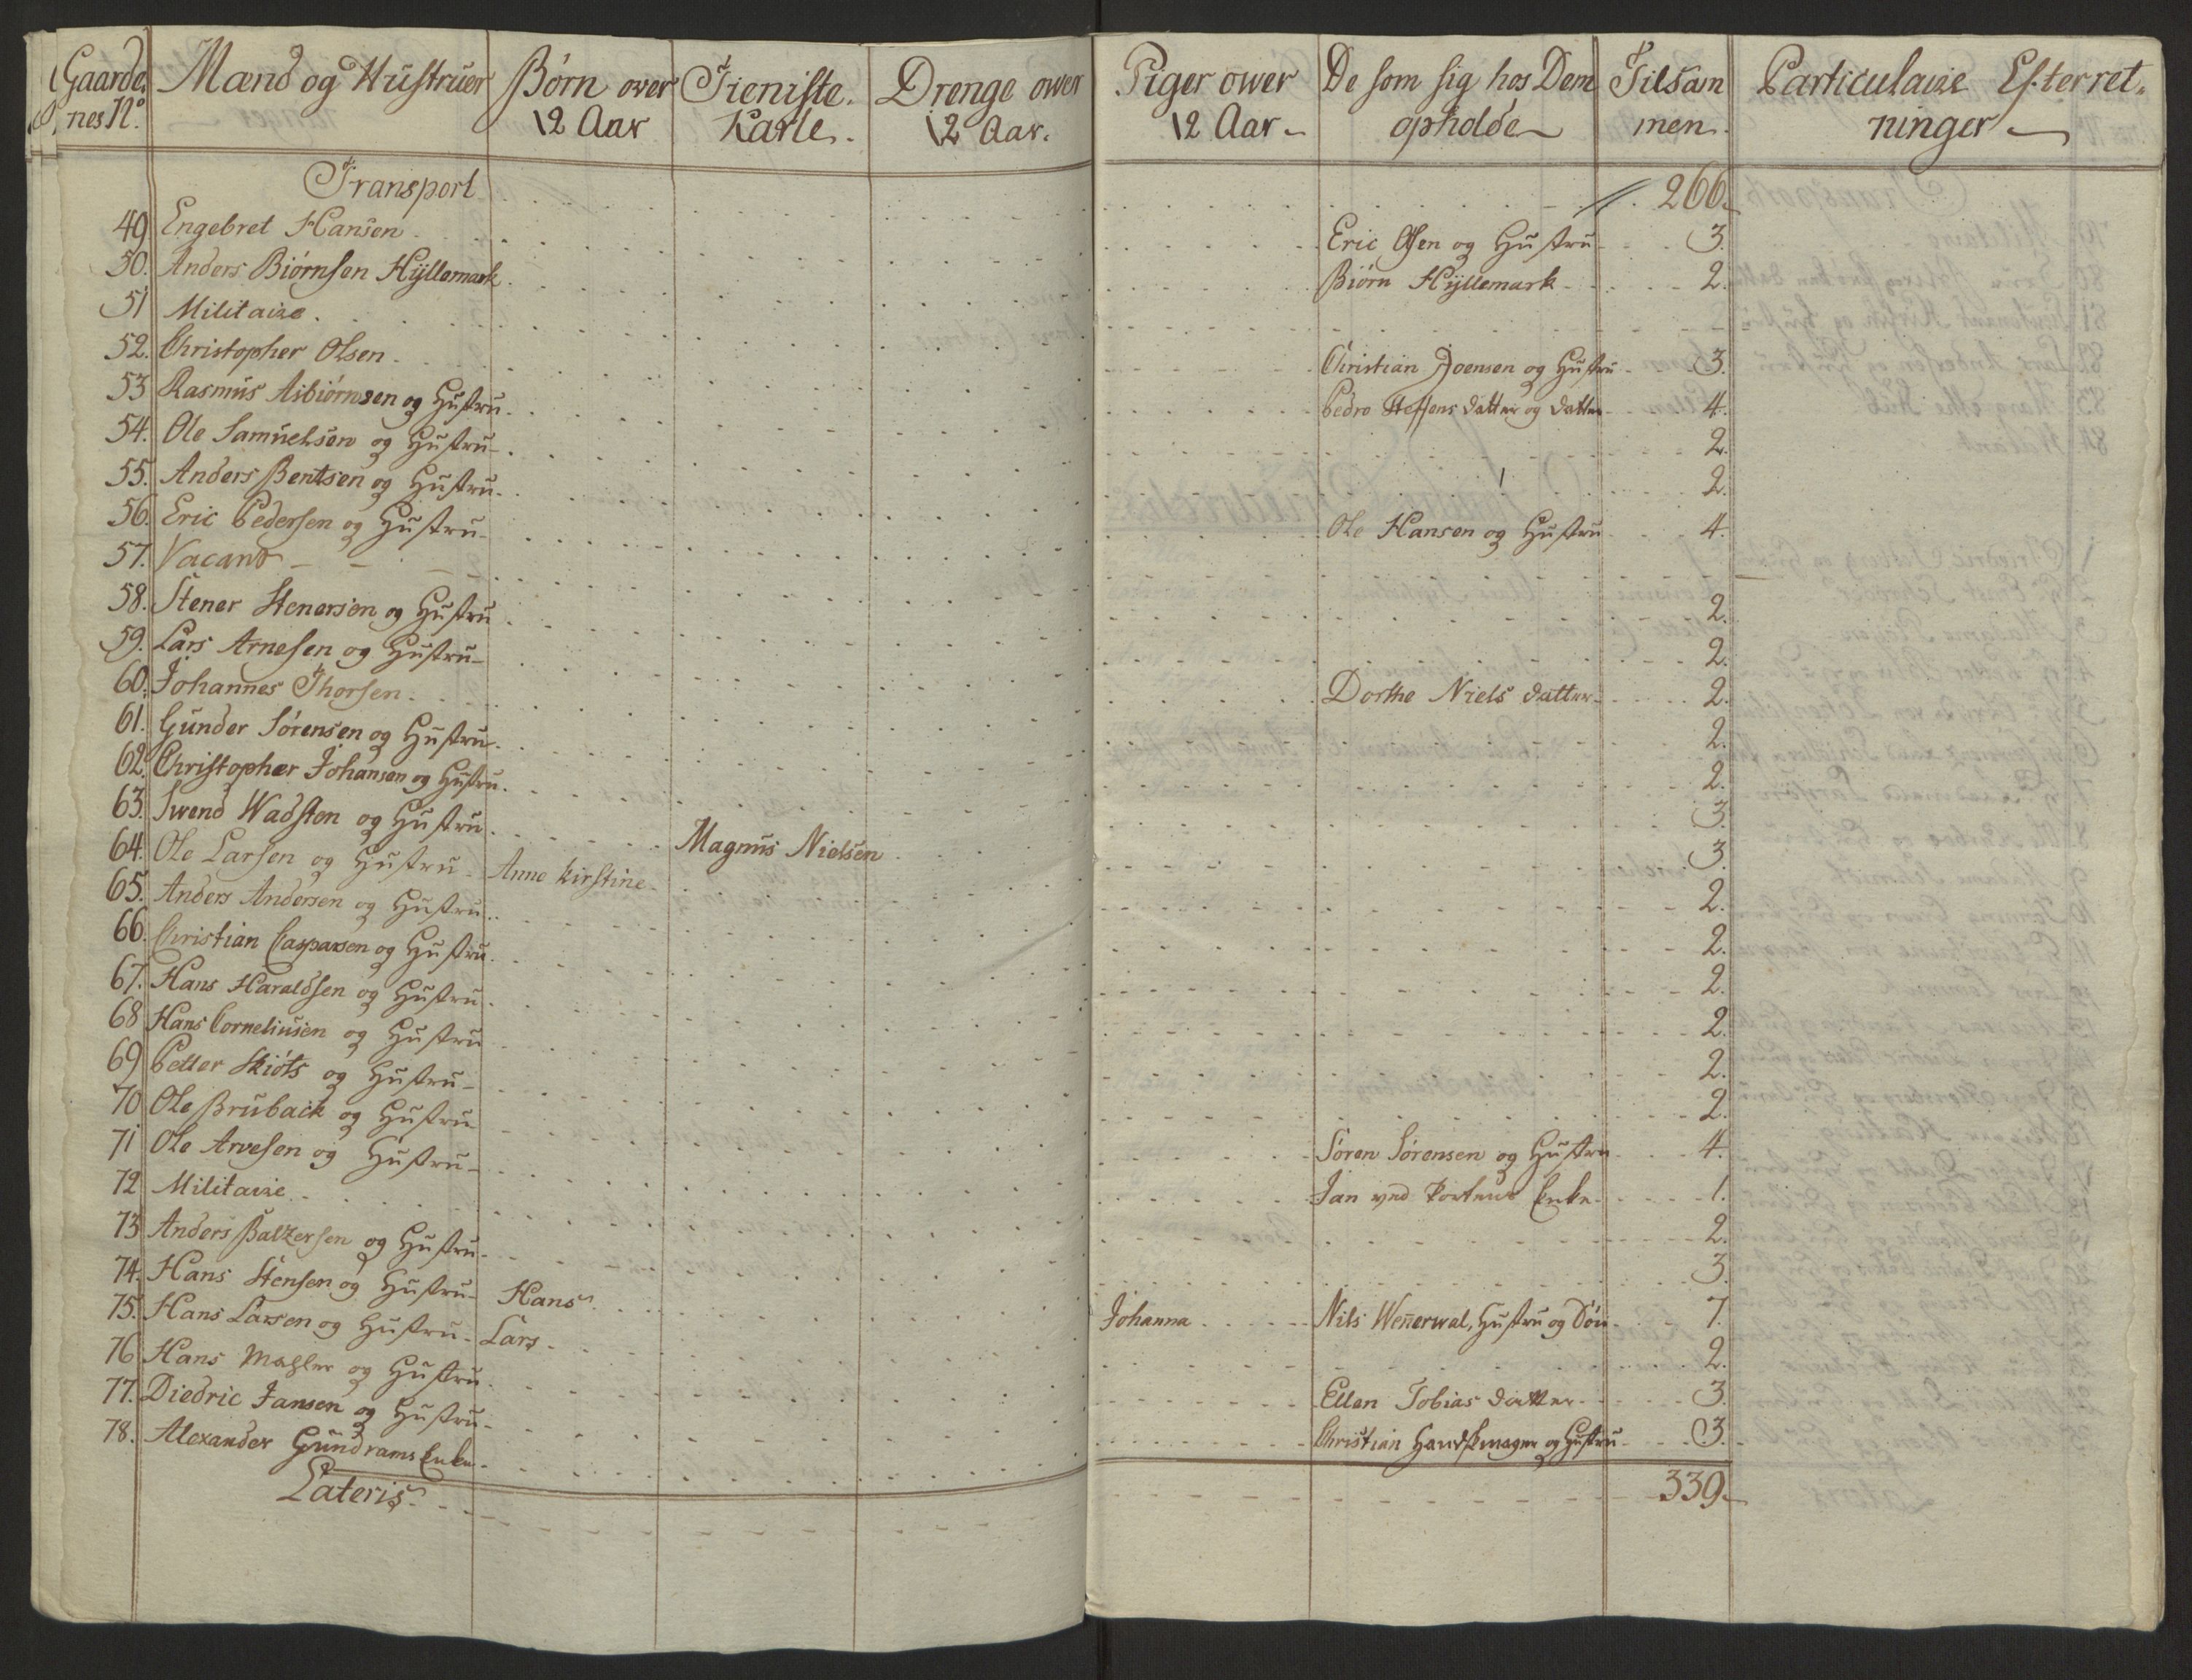 Gaarde, Mænd og Hustruer Børn over Tieniste. Drenge over Piger over De som sig hos Dem Tilsam Particulaire Efterret,
nes No. 12 Aar Karle. 12 Aar. 12 Aar opholde men. ninger
Transport 266.
49 Engebret Hansen Eric Olsen og Hustru 3.
50. Anders Biørnsen Hÿllemark Biørn Hÿllemark 2.
51 Militaire.
52. Christopher Olsen Christian Joensen og Hustru 3.
53 Rasmus Asbiørnsen og Hustru Pedro Steffens datter og datter 4.
54. Ole Samuelsen og Hustru 2.
55. Anders Bentsen og Hustru 2.
56. Eric Pedersen og Hustru Ole Hansen og Hustru 4.
57. Vacant
58. Stener Stenersen og Hustru 2.
59. Lars Arnesen og Hustru 2.
60. Johannes Thorsen Dorthe Niels datter 2.
61. Gunder Sørensen og Hustru 2.
62. Christopher Johansen og Hustru 2.
63. Swend Wadsten og Hustru Magnus Nielsen 3.
64. Ole Larsen og Hustru Anne Kirstine 3.
65. Anders Andersen og Hustru 2.
66. Christian Casparsen og Hustru 2.
67. Hans Haraldsen og Hustru 2.
68 Hans Corneliusen og Hustru 2.
69 Petter Skiøts og Hustru 2.
70 Ole Bruback og Hustru 2.
71 Ole Arvesen og Hustru Søren Sørensen og Hustru 4.
72 Militaire Jan ved Porten Enke 1.
73 Anders Balzersen og Hustru 2.
74. Hans Stensen og Hustru Hans 3.
75. Hans Larsen og Hustru Lars Johanna Nils Wen̄erwal, Hustru og Søn 7.
76 Hans Mahler og Hustru 2.
77. Diedric Jansen og Hustru Ellen Tobias datter 3.
78. Alexander Gundrams Enke Christian Handskemager og Hustru 3.
Lateris 339.